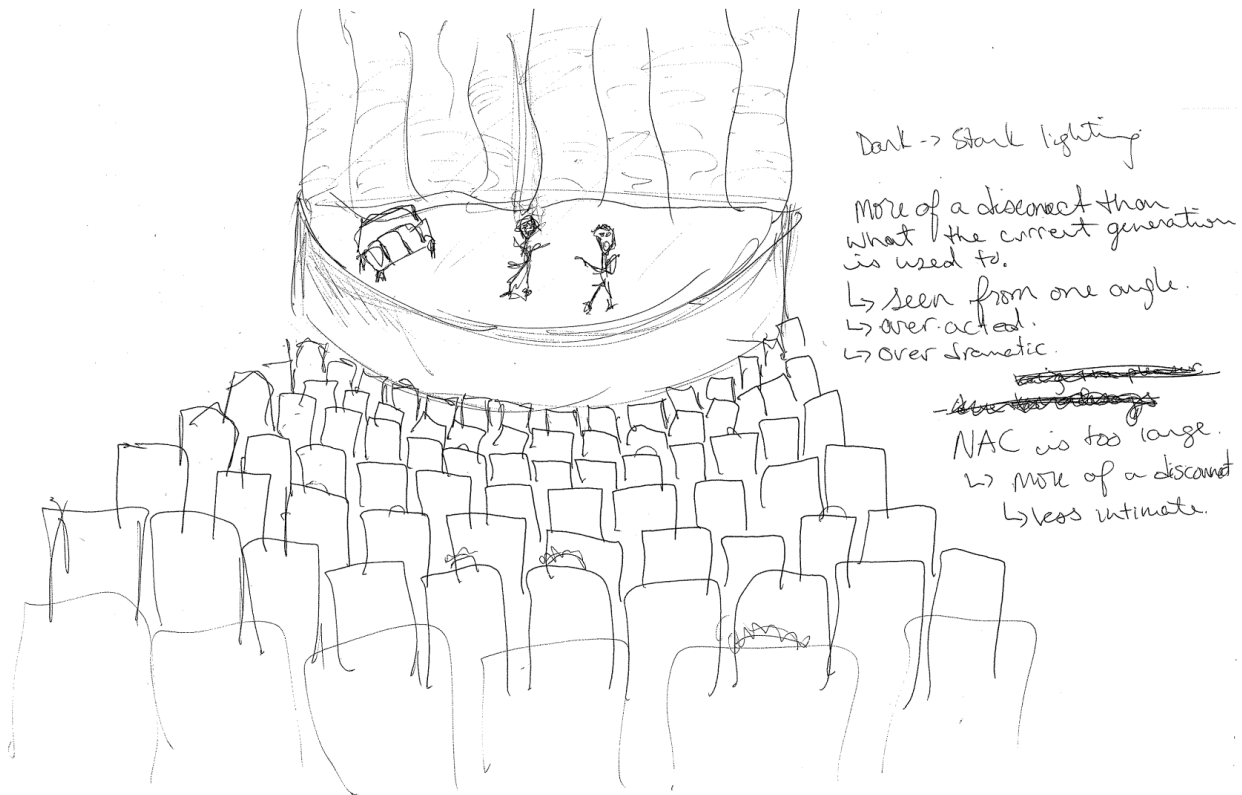 Dark -> Stark lighting
More of a disconnect than
what the current generation
is used to.
↳ seen from one angle.
↳ over acted.
↳ over dramatic.
NAC is too large.
↳ more of a disconnect
↳ less intimate.